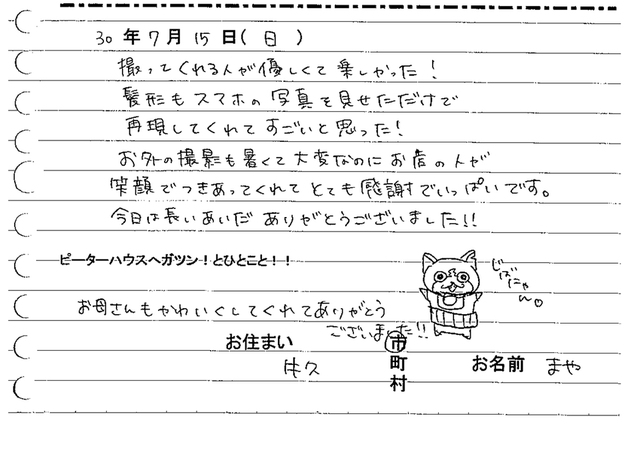 30 年 7 月 15 日( 日 )
撮ってくれる人が優しくて楽しかった!
髪形もスマホの写真を見せただけで
再現してくれてすごいと思った!
お外の撮影も暑くて大変なのにお店の人が
笑顔でつきあってくれてとても感謝でいっぱいです。
今日は長いあいだありがとうございました!!
ピーターハウスへガツン!とひとこと!!
じばにゃん。
お母さんもかわいくしてくれてありがとう
ございました!!
お住まい 牛久 市 町 村 お名前 まや